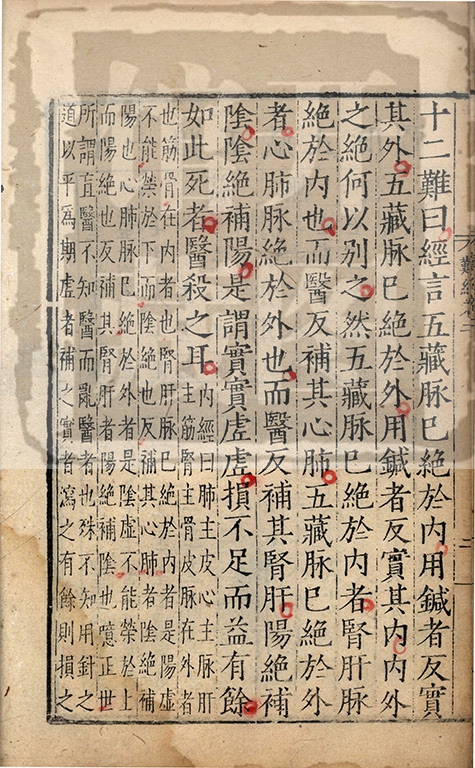 十二難曰經言五藏脉已絶於内用鍼者反實
其外五藏脉已絶於外用鍼者反實其内内外
之絶何以别之然五藏脉已絶於内者腎肝脉
絶於内也而醫反補其心肺五藏脉已絶於外
者心肺脉絶於外也而醫反補其腎肝陽絶補
陰陰絶補陽是謂實實虛虛損不足而益有餘
如此死者醫殺之耳
内經曰肺主皮心主脉肝
主筋腎主骨皮脉在外者
也筋骨在内者也腎肝脉已絶於内者是陽虛
不能禁於下而陰絶也反補其心肺者陰絶補
陽也心肺脉已絶於外者是陰虛不能榮於上
而陽絶也反補其腎肝者陽絶補陰也噫正世
所謂盲醫不知醫而亂醫者也殊不知用針之
道以平爲期虛者補之實者瀉之有餘則損之
難經